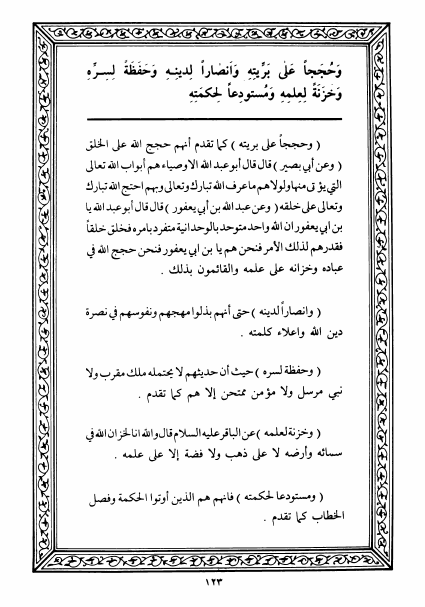 وَحُجَجاً عَلىٰ بَرِيَّتِهِ وَأَنصٰاراً لِدينِـهِ وَحَفَظَةً لِسِـرِّهِ
وَخَزَنَةً لِعِلمِهِ وَمُستودِعاً لِحِكمَتِهِ
( وحججاً على بريته ) كما تقدم أنهم حجج الله على الخلق
( وعن أبي بصير ) قال قال أبو عبد الله الاوصياء هم أبواب الله تعالى
التي يؤتى منها ولولاهم ما عرف الله تبارك وتعالى وبهم احتج الله تبارك
وتعالى على خلقه ( وعن عبدالله بن أبي يعفور ) قال قال أبو عبد الله يا
بن ابي يعفور ان الله واحد متوحد بالوحدانية متفرد بامره فخلق خلقاً
فقدرهم لذلك الأمر فنحن هم يا بن ابي يعفور فنحن حجج الله في
عباده وخزانه على علمه والقائمون بذلك .
( وانصاراً لدينه ) حتى أنهم بذلوا مهجهم ونفوسهم في نصرة
دين الله واعلاء كلمته .
( وحفظة لسره ) حيث أن حديثهم لا يحتمله ملك مقرب ولا
نبي مرسل ولا مؤمن ممتحن إلا هم كما تقدم .
( وخزنة لعلمه ) عن الباقر عليه السلام قال والله انا لخزان الله في
سمائه وأرضه لا على ذهب ولا فضة إلا على علمه .
( ومستودعا لحكمته ) فانهم هم الذين أوتوا الحكمة وفصل
الخطاب كما تقدم .
١٢٣